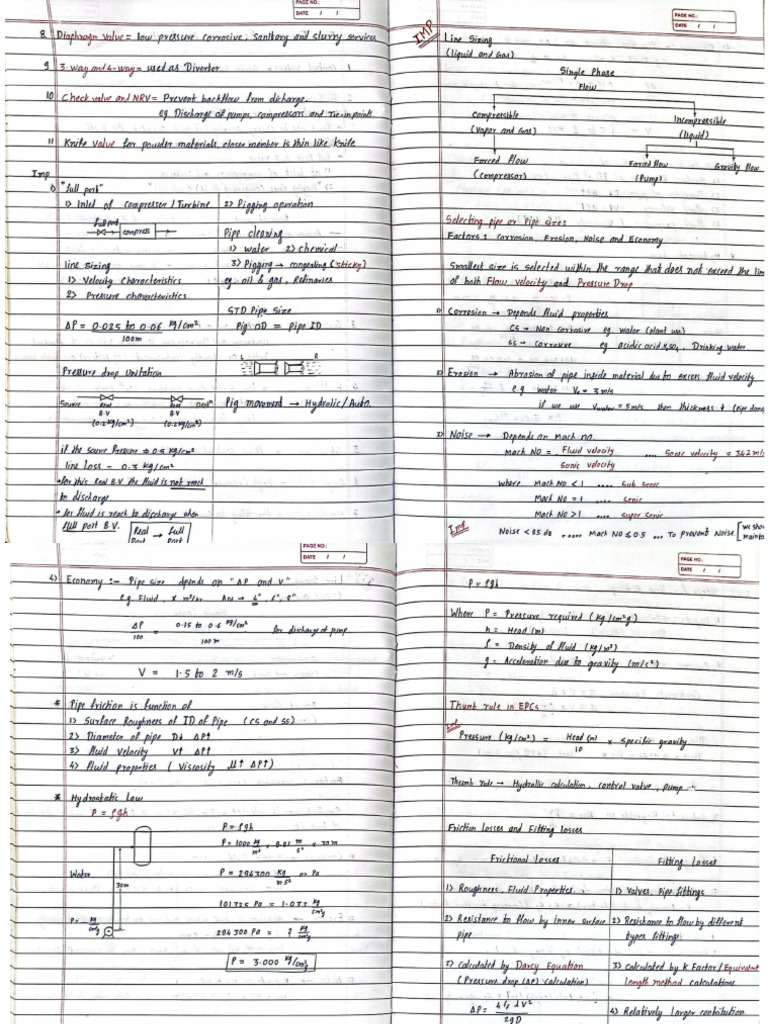 PAGE NO.:
DATE / /
8. Diaphragm valve = low pressure corrosive, sanitary and slurry services
9 3-way and 4-way = used as Diverter
10 Check valve and NRV = Prevent backflow from discharge.
eg. Discharge of pumps, compressors and Tie-in points
11 Knife valve for powder materials, closer member is thin like knife
Imp
1) "full port"
1) Inlet of compresser / Turbine
full port
compress
line sizing
1) Velocity characteristics
2) Pressure characteristics
ΔP = 0.025 to 0.06 kg/cm²
100m
Pressure drop limitation
Source
Real
B.V
(0.2 kg/cm²)
Real
B.V
(0.2 kg/cm²)
Destn
if the source pressure => 0.5 kg/cm²
line Loss - 0.3 kg/cm²
• for this Real B.V the fluid is not reach
to discharge
• for fluid is reach to discharge when
full port B.V.
Real → full
Port Port
2) Pigging operation
Pipe cleaning
1) water 2) chemical
3) Pigging → congealing (sticky)
eg. oil & gas, Refinaries
STD Pipe Size
Pig OD = Pipe ID
L R
Pig movement → Hydrolic/Auto.
PAGE NO.:
DATE / /
IMP
Line Sizing
(liquid and Gas)
Single Phase
Flow
Compressible
(Vapor and Gas)
Incompressible
(liquid)
Forced Flow
(Compressor)
Forced flow
(Pump)
Gravity Flow
Selecting pipe or Pipe sizes
Factors : Corrosion, Erosion, Noise and Economy
Smallest size is selected within the range that does not exceed the
of both Flow velocity and Pressure Drop
1) Corrosion → Depends fluid properties
CS → Non corrosive eg. water (plant use)
SS → Corrosive eg acidic acid H₂SO₄ , Drinking water
2) Erosion → Abrosion of pipe inside material due to excess fluid velocity
e.g water Ve = 3 m/s
if we use Vwater = 5 m/s then thickness ↓ (pipe
3) Noise → Depends on Mach no.
Mach No = Fluid velocity .... Sonic velocity = 342 m/
Sonic velocity
where Mach No < 1 .... Sub sonic
Mach No = 1 .... Sonic
Mach No > 1 .... super sonic
Imp
Noise < 85 db ..... Mach No ≤ 0.5 ... To prevent Noise [we
PAGE NO.:
DATE / /
4) Economy :- Pipe size dpends on "ΔP and V"
e.g. Fluid , x m³/hr Ans → 4", 6", 8"
ΔP = 0.15 to 0.6 kg/cm² for discharge of pump
100 100 m
V = 1.5 to 2 m/s
* Pipe friction is function of
1) Surface Roughness of ID of Pipe (CS and SS)
2) Diameter of pipe D↓ ΔP↑
3) fluid velocity V↑ ΔP↑
4) fluid properties ( Viscosity μ↑ ΔP↑)
* Hydrostatic Law
P = ρgh
Water
30m
P = kg
cm²g
P = ρgh
P = 1000 kg/m³ × 9.81 m/s² × 30 m
P = 294300 kg/ms² or Pa
101325 Pa = 1.033 kg/cm²g
294300 Pa = ? kg/cm²g
P = 3.000 kg/cm²g
PAGE NO.:
DATE / /
P = ρgh
Where P = Pressure required (kg/cm²g)
h = Head (m)
ρ = Density of fluid (kg/m³)
g = Acceleration due to gravity (m/s²)
Thumb rule in EPCs
Imp
Pressure (kg/cm²) = Head (m) × Specific gravity
10
Thumb rule → Hydrallic calculation, control valve, pump
Friction losses and Fitting losses
Frictional losses
1) Roughness, Fluid Properties.
2) Resistance to flow by inner surface
pipe
3) calculated by Darcy Equation
(Pressure drop (ΔP) calculation)
ΔP = 4 f L V²
2gD
Fitting Losses
1) Valves, Pipe fittings
2) Resistance to flow by different
types fittings
3) calculated by K Factor / Equivalent
length method calculations
4) Relatively larger contribution